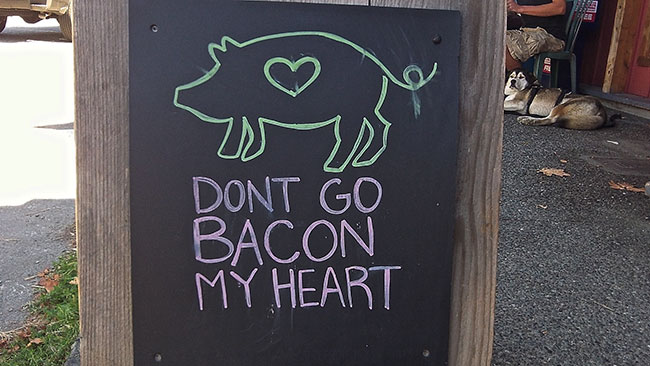 DONT GO
BACON
MY HEART